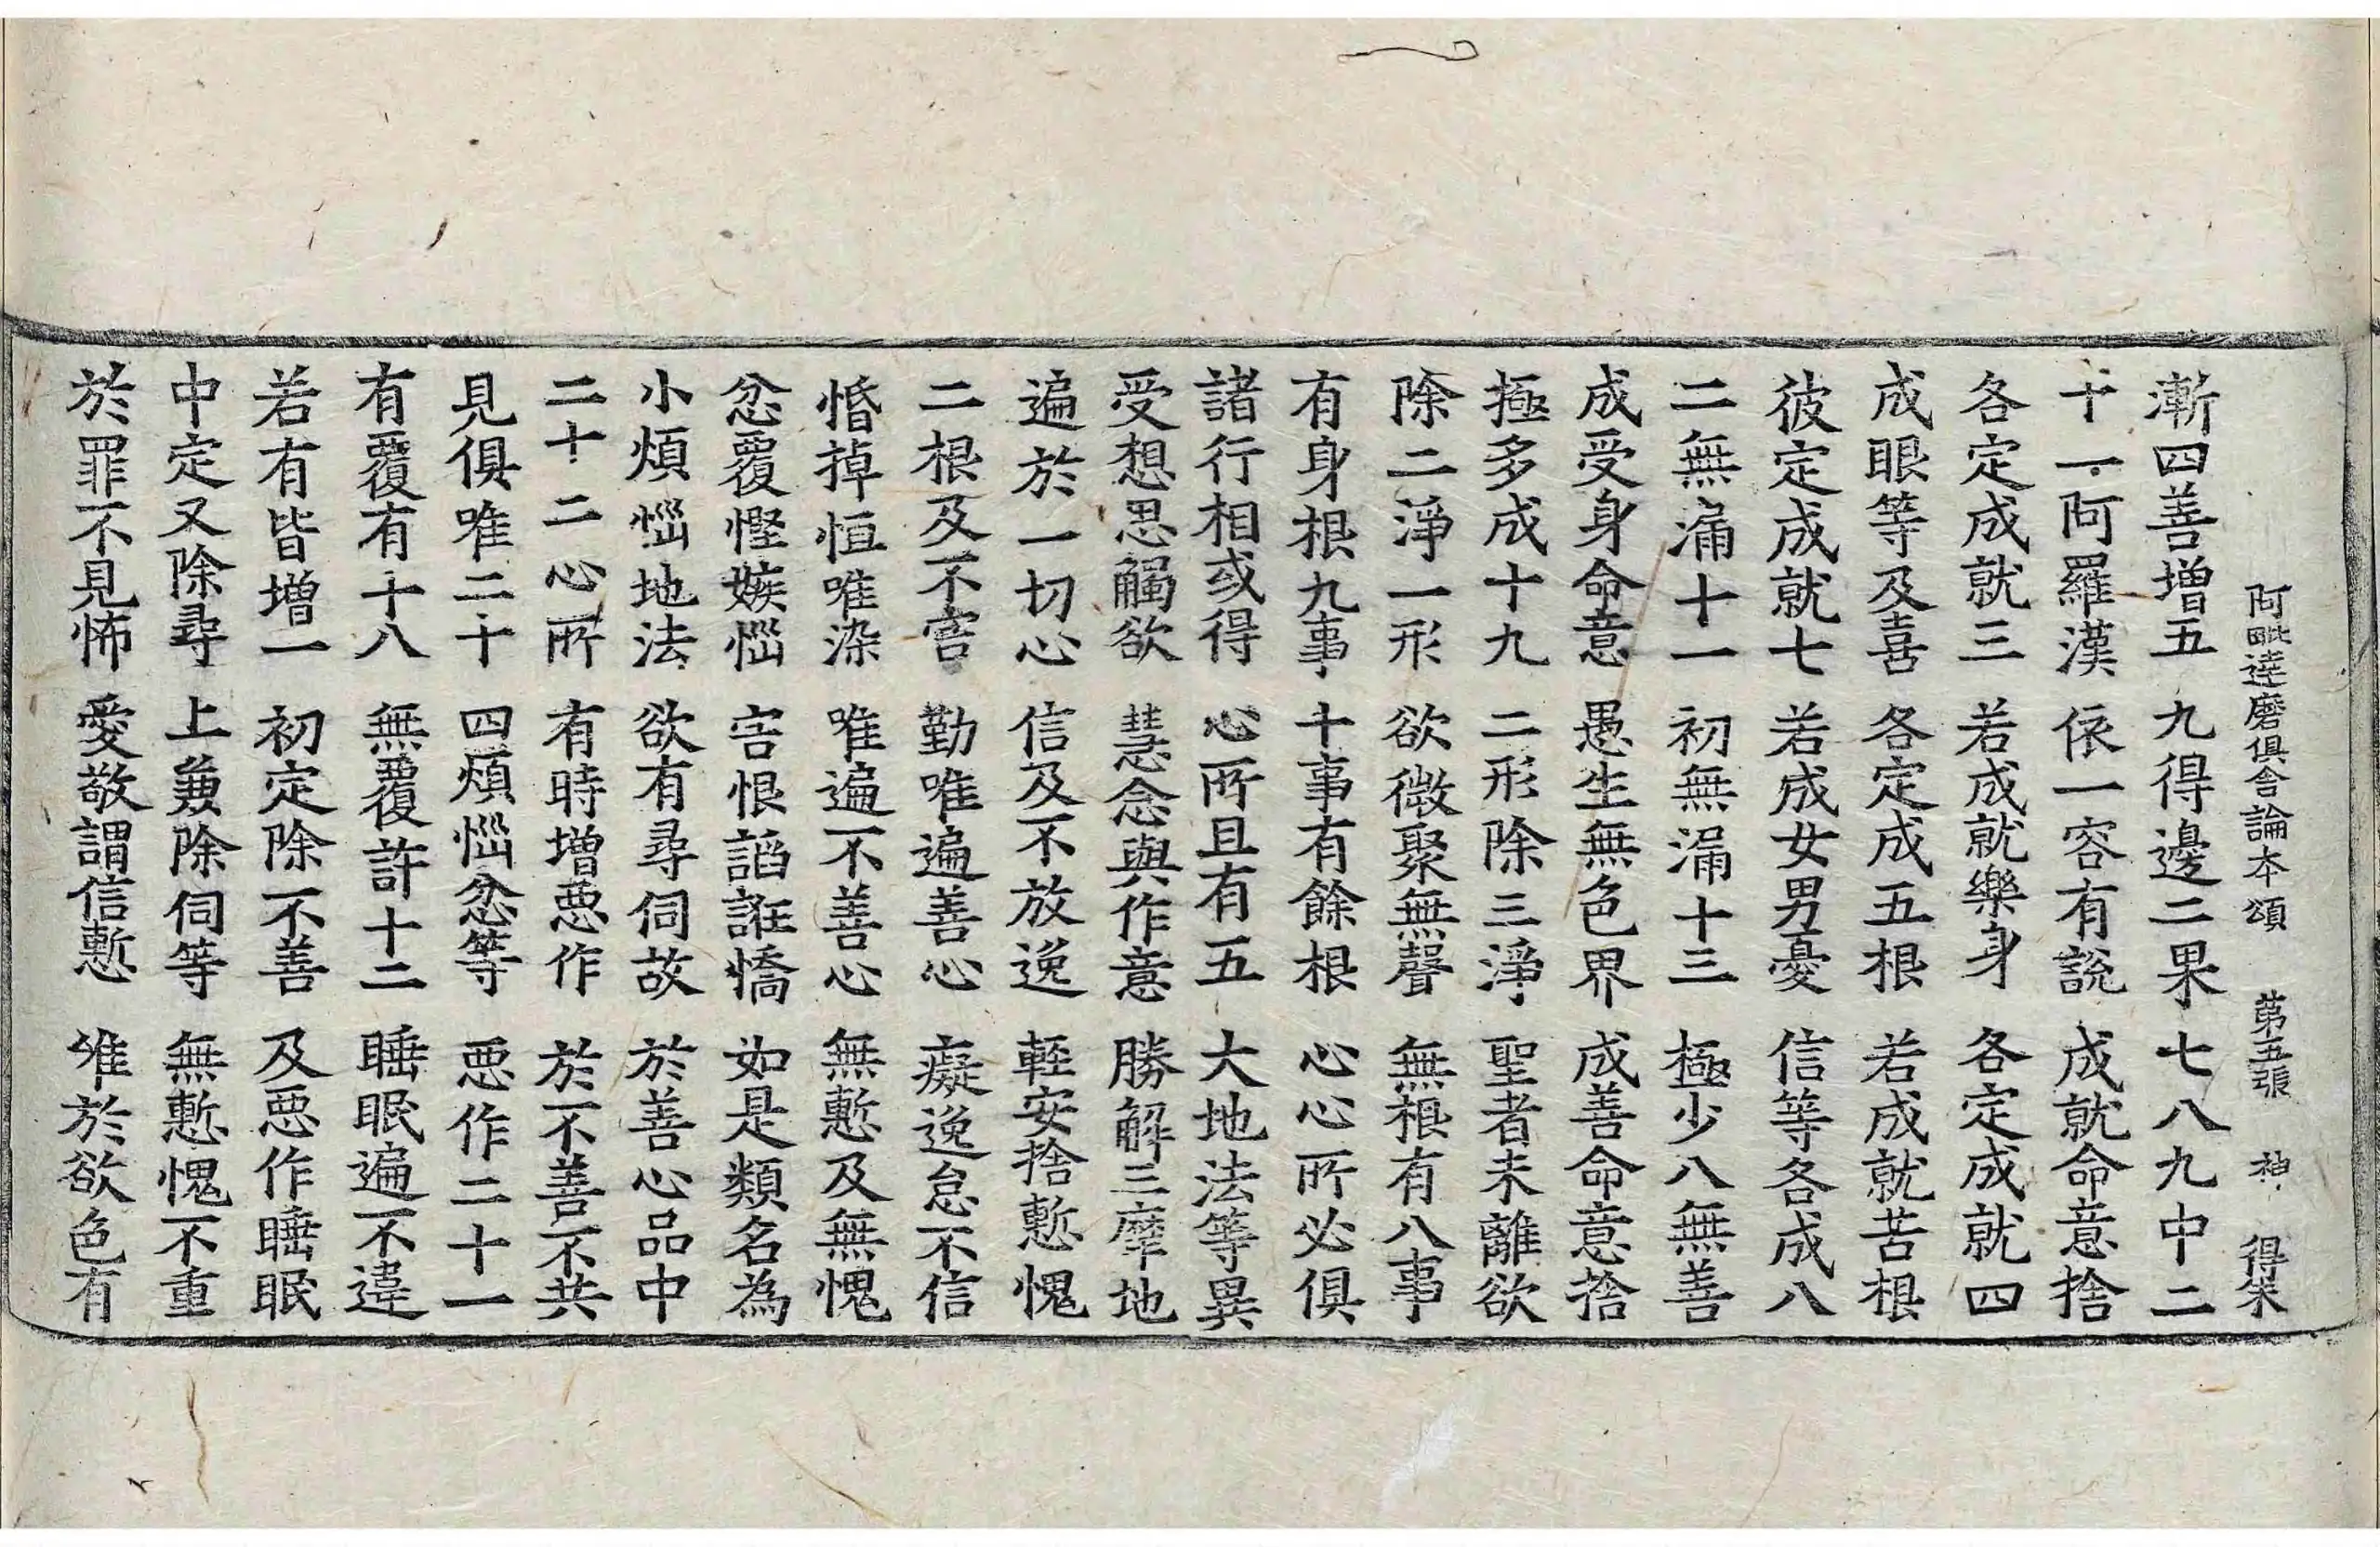 阿毗達磨俱舍論本頌 第五張 神 得宋
漸四善增五 九得邊二果 七八九中二
十一阿羅漢 依一容有說 成就命意捨
各定成就三 若成就樂身 各定成就四
成眼等及喜 各定成五根 若成就苦根
彼定成就七 若成女男憂 信等各成八
二無漏十一 初無漏十三 極少八無善
成受身命意 愚生無色界 成善命意捨
極多成十九 二形除三淨 聖者未離欲
除二淨一形 欲微聚無聲 無根有八事
有身根九事 十事有餘根 心心所必俱
諸行相或得 心所且有五 大地法等異
受想思觸欲 慧念與作意 勝解三摩地
遍於一切心 信及不放逸 輕安捨慙愧
二根及不害 勤唯遍善心 癡逸怠不信
惛掉恒唯染 唯遍不善心 無慙及無愧
忿覆慳嫉惱 害恨諂誑憍 如是類名為
小煩惱地法 欲有尋伺故 於善心品中
二十二心所 有時增惡作 於不善不共
見俱唯二十 四煩惱忿等 惡作二十一
有覆有十八 無覆許十二 睡眠遍不違
若有皆增一 初定除不善 及惡作睡眠
中定又除尋 上兼除伺等 無慙愧不重
於罪不見怖 愛敬謂信慙 唯於欲色有